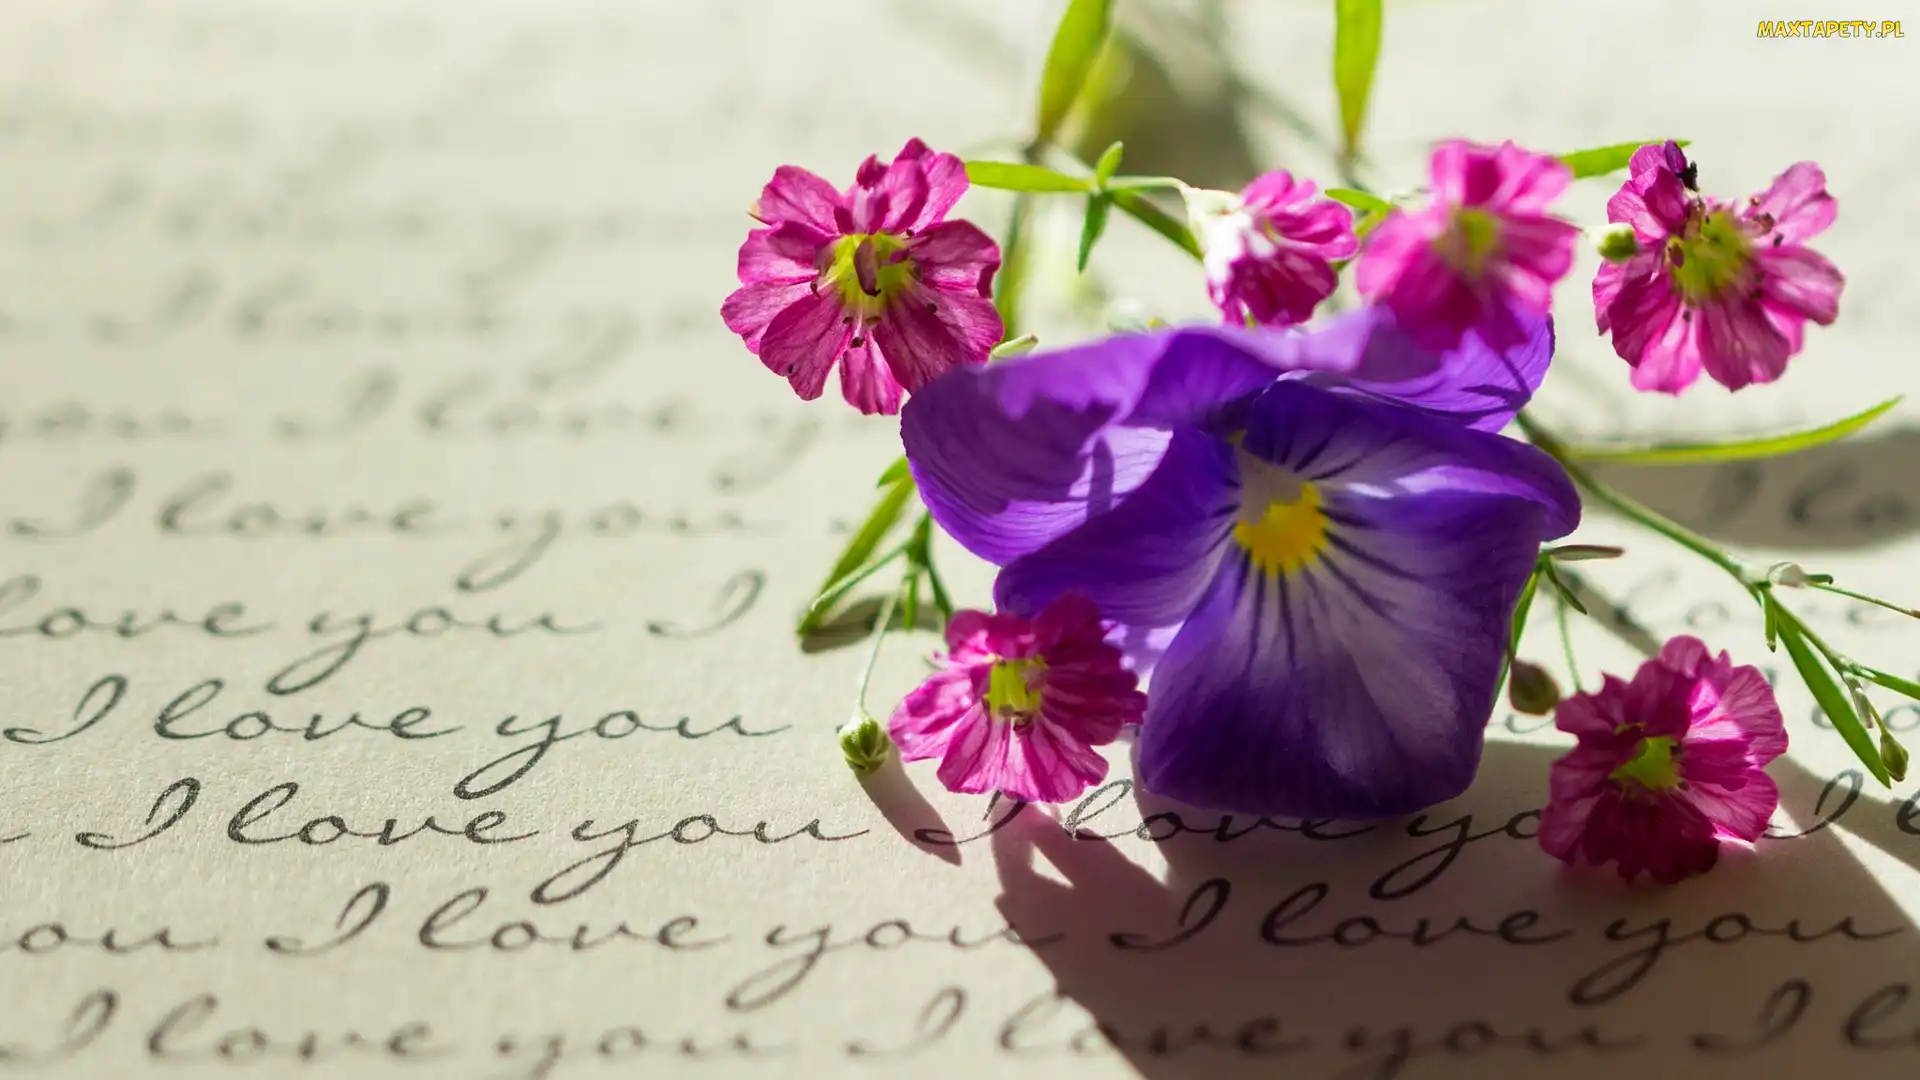 MAXTAPETY.PL
I love you
I lo
love you I
I love you
I love you I love yo I l
you I love you I love you
I love you I love you I l